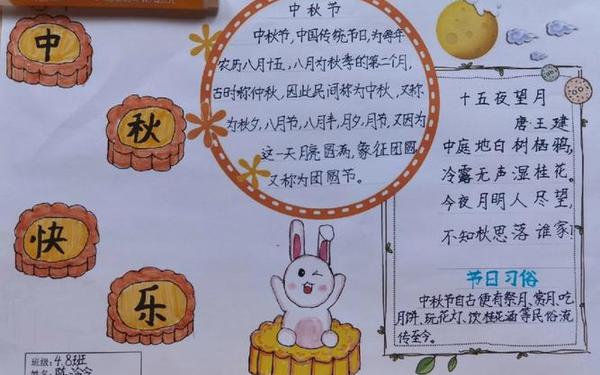 中
秋
快
乐
中秋节
中秋节,中国传统节日,为每年
农历八月十五,八月为秋季的第二个月,
古时称仲秋,因此民间称为中秋,又称
为秋夕,八月节,八月半,月夕,月节,又因为
这一天月亮圆满,象征团圆
又称为团圆节。
十五夜望月
唐王建
中庭地白树栖鸦,
冷露无声湿桂花。
今夜月明人尽望,
不知秋思落谁家
节日习俗
中秋节自古便有祭月、赏月、吃
月饼、玩花灯、饮桂花酒等民俗流
传至今。
班级:4.8班
姓名:陈